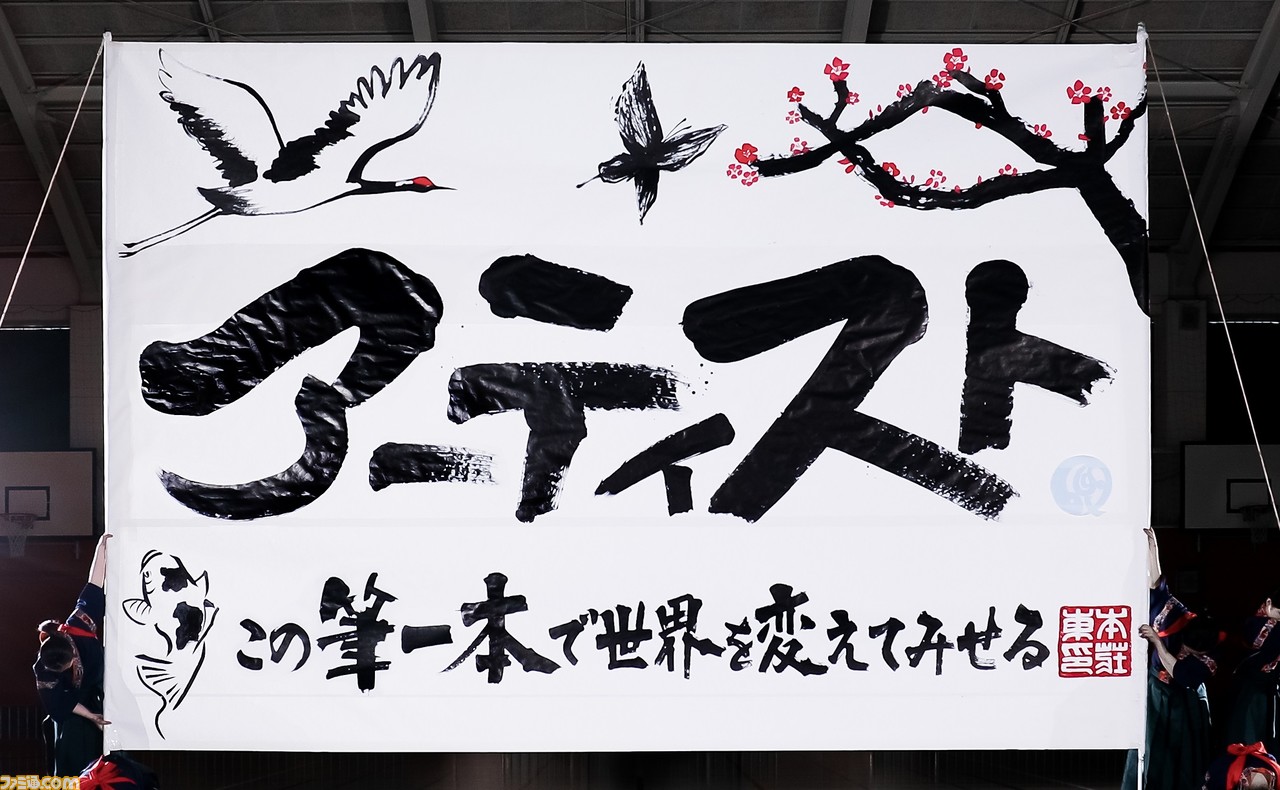 アーティスト
この筆一本で世界を変えてみせる
本荘東印
ファミ通.com